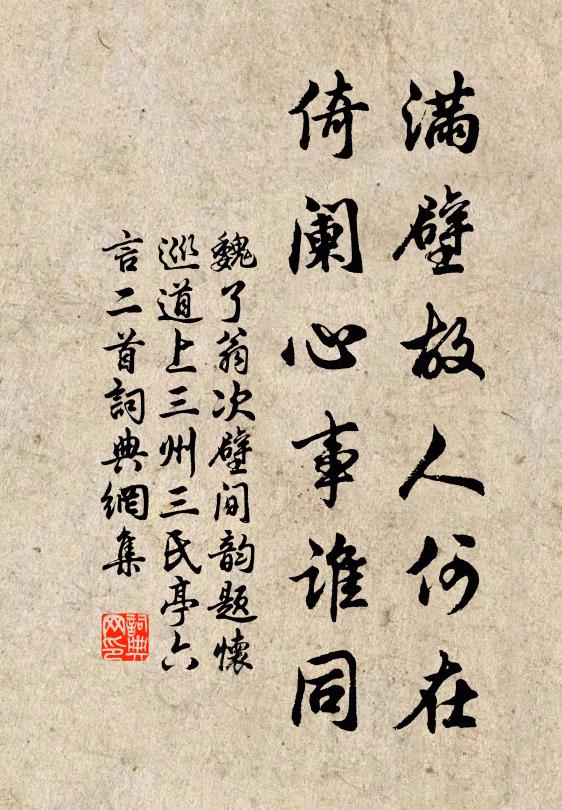 满壁故人何在
倚阑心事谁同
魏了翁次壁间韵题怀
巡道上三州三民亭六
言二首詞典網集
詞典
网印